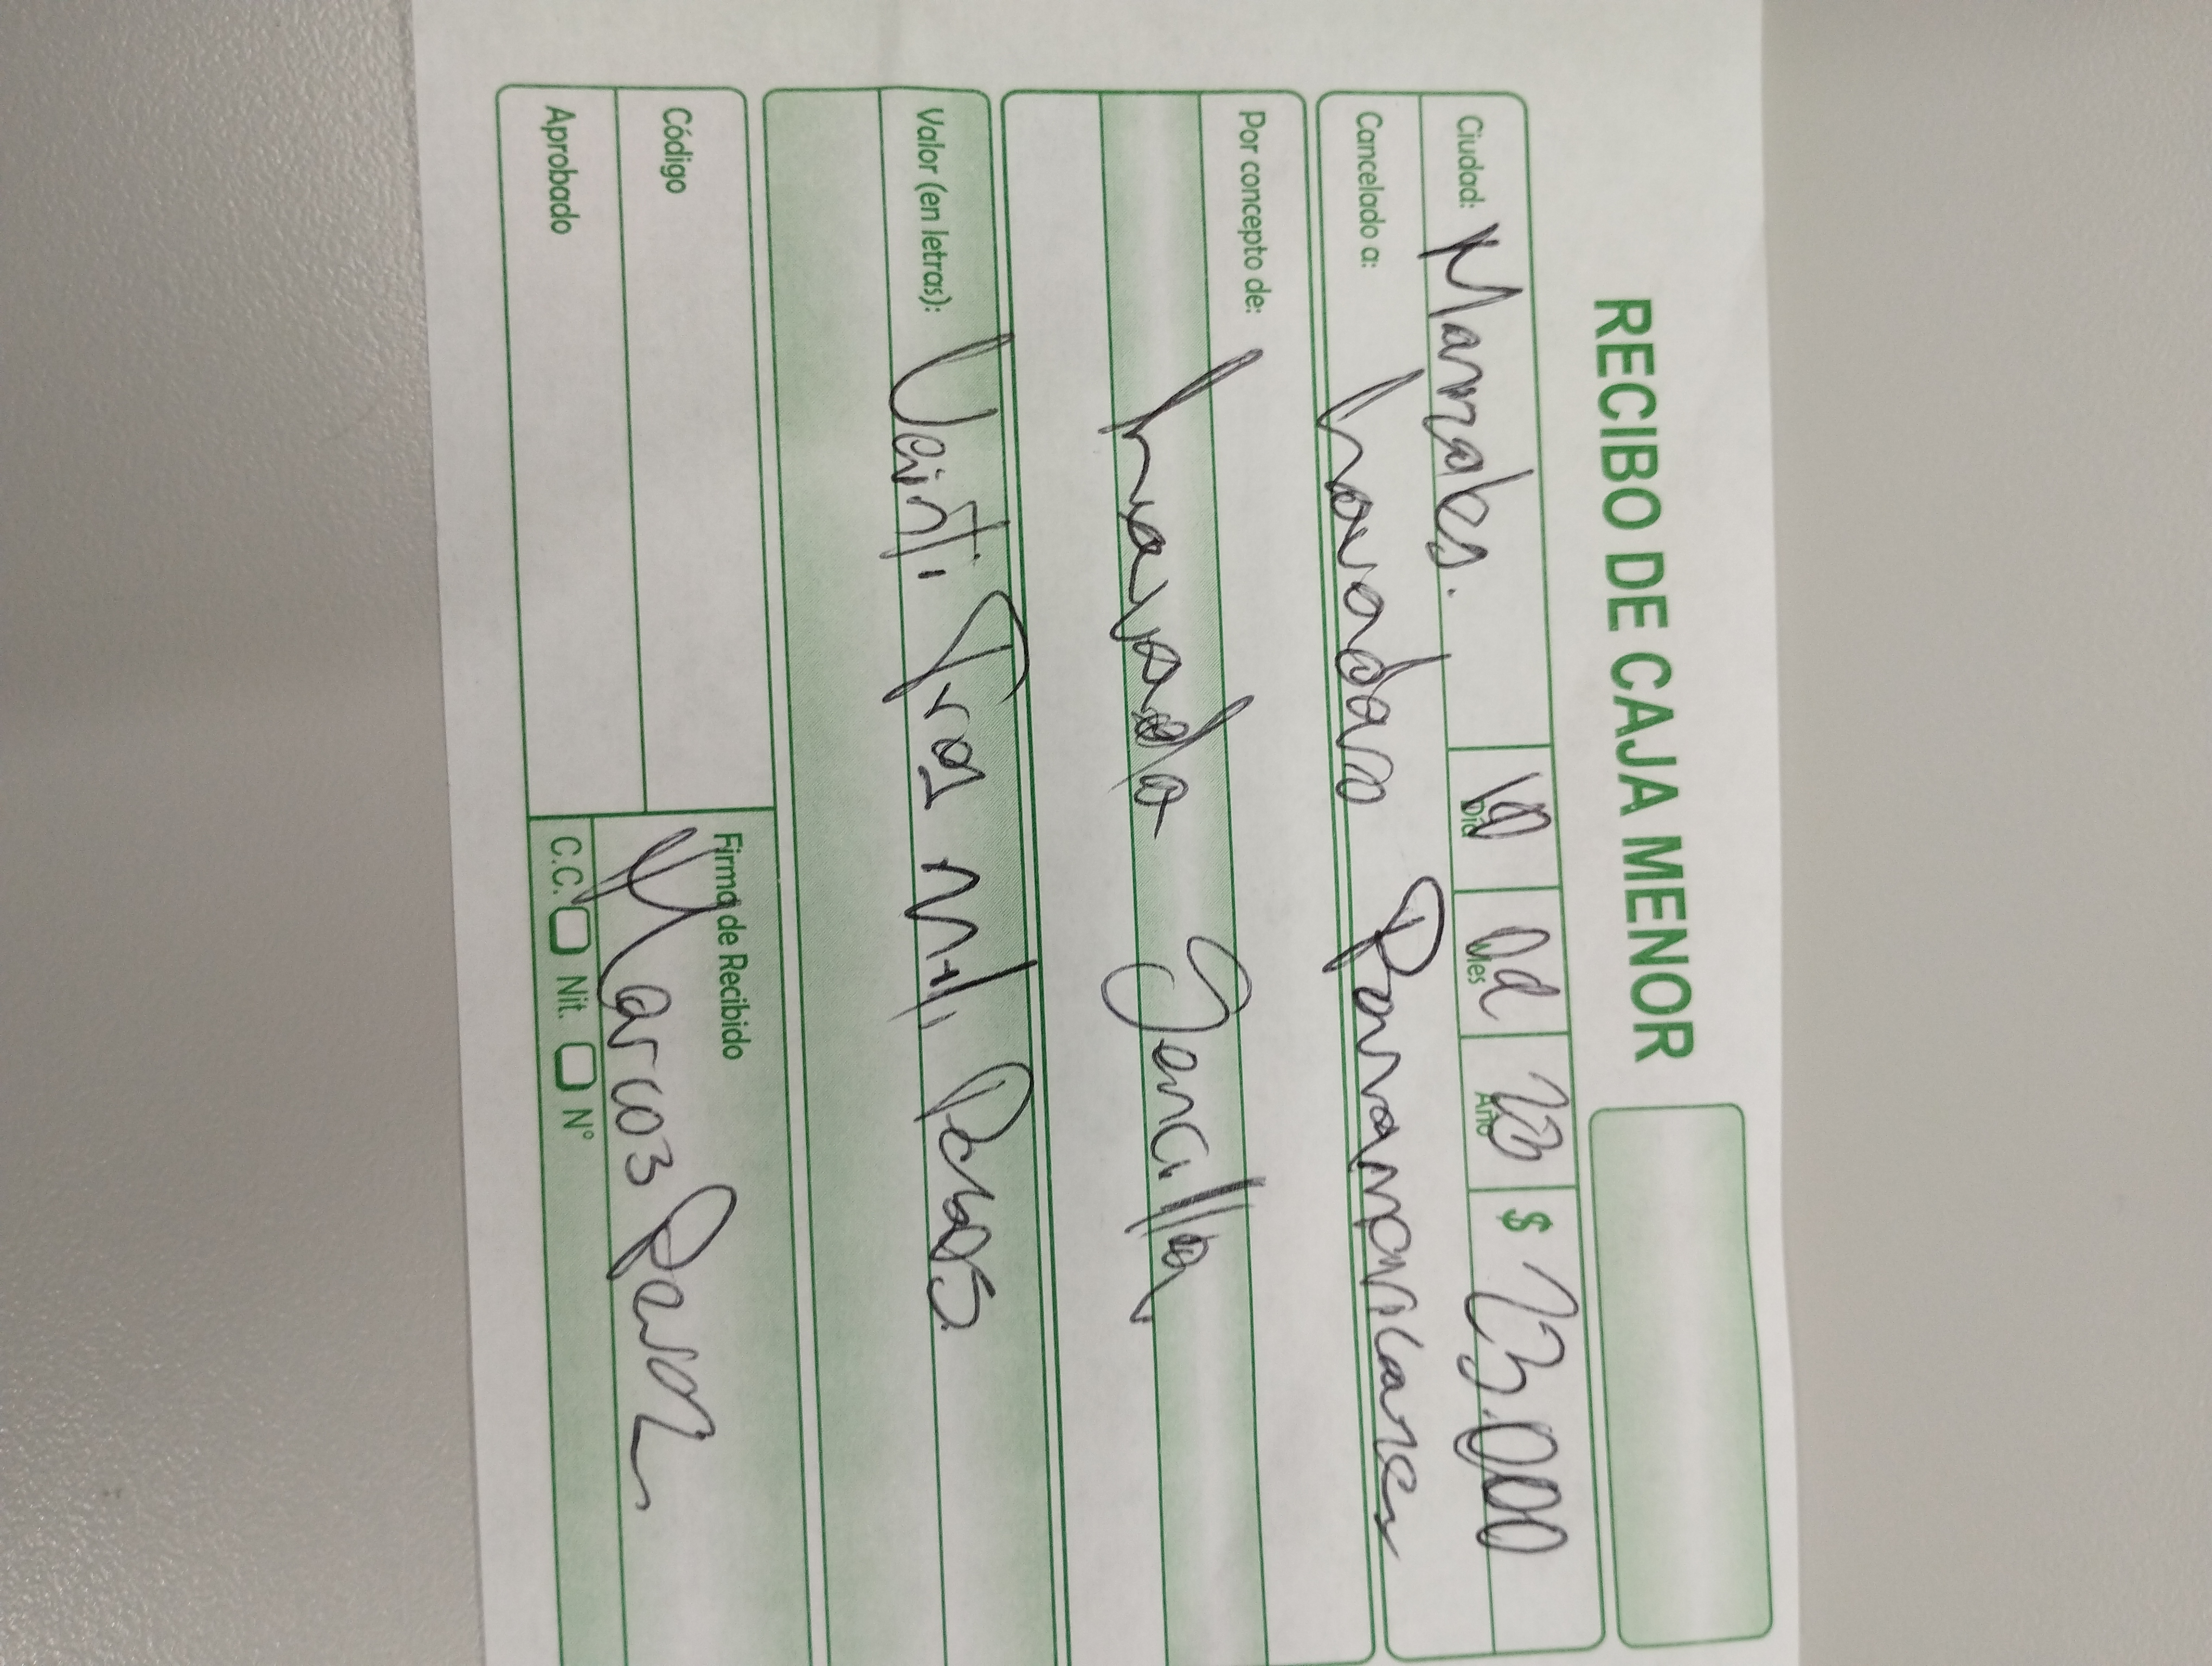 RECIBO DE CAJA MENOR
Ciudad: Manizales. Día 10 Mes 02 Año 23 $ 23.000
Cancelado a: Lavadero Panamericano
Por concepto de:
Lavada Sencilla
Valor (en letras): Veinti Tres Mil Pesos
Código
Aprobado
Firma de Recibido
Marcos
C.C. Nit. N°